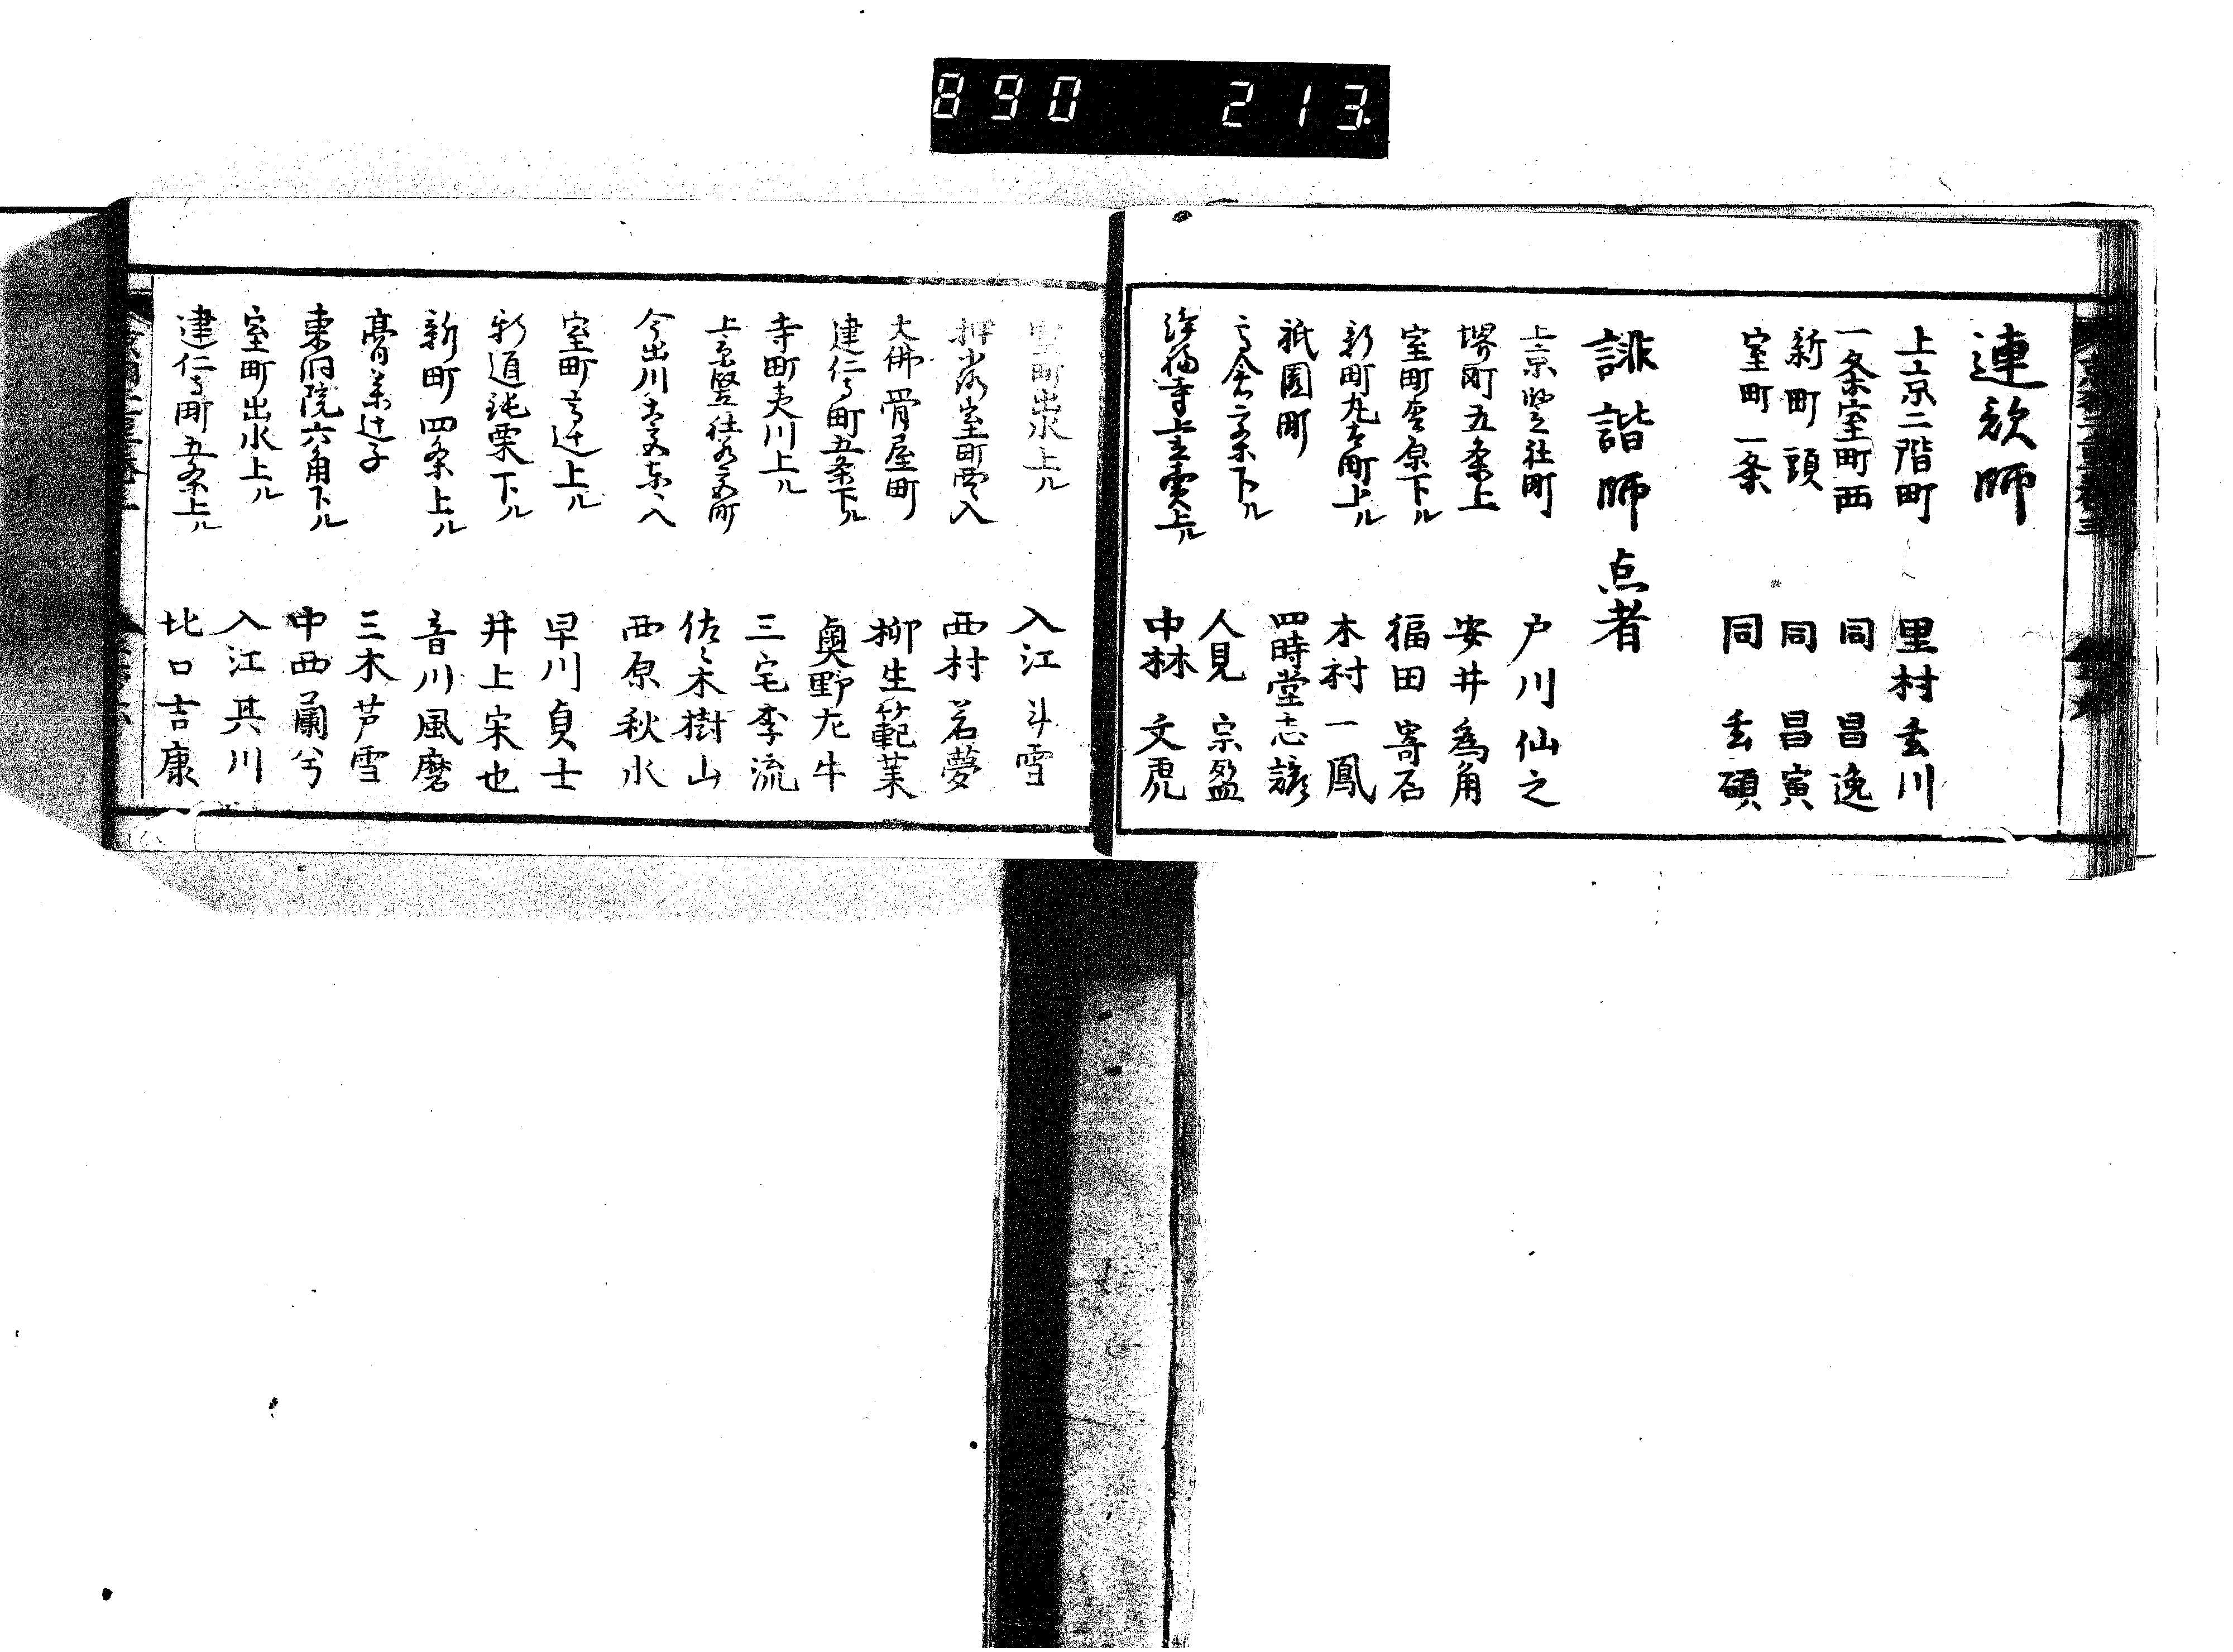 890 213
連歌師
上京二階町 里村玄川
一条室町西 同 昌逸
新町頭 同 昌寅
室町一条 同 玄碩
誹諧師点者
上京竪社町 戸川仙之
堺町五条上 安井為角
室町松原下ル 福田寄石
新町丸太町上ル 木村一鳳
祇園町 四時堂志諺
高倉二条下ル 人見宗盈
浄福寺上立売上ル 中林文虎
室町出水上ル 入江斗雪
押小路室町西入 西村若夢
大佛骨屋町 柳生範葉
建仁寺町五条下ル 奥野尨牛
寺町夷川上ル 三宅李流
上京竪社 佐々木樹山
今出川 西原秋水
室町高辻上ル 早川貞士
新道 下ル 井上宋也
新町四条上ル 音川風磨
膏薬辻子 三木芦雪
東洞院六角下ル 中西蘭兮
室町出水上ル 入江其川
建仁寺町五条上ル 比口吉康